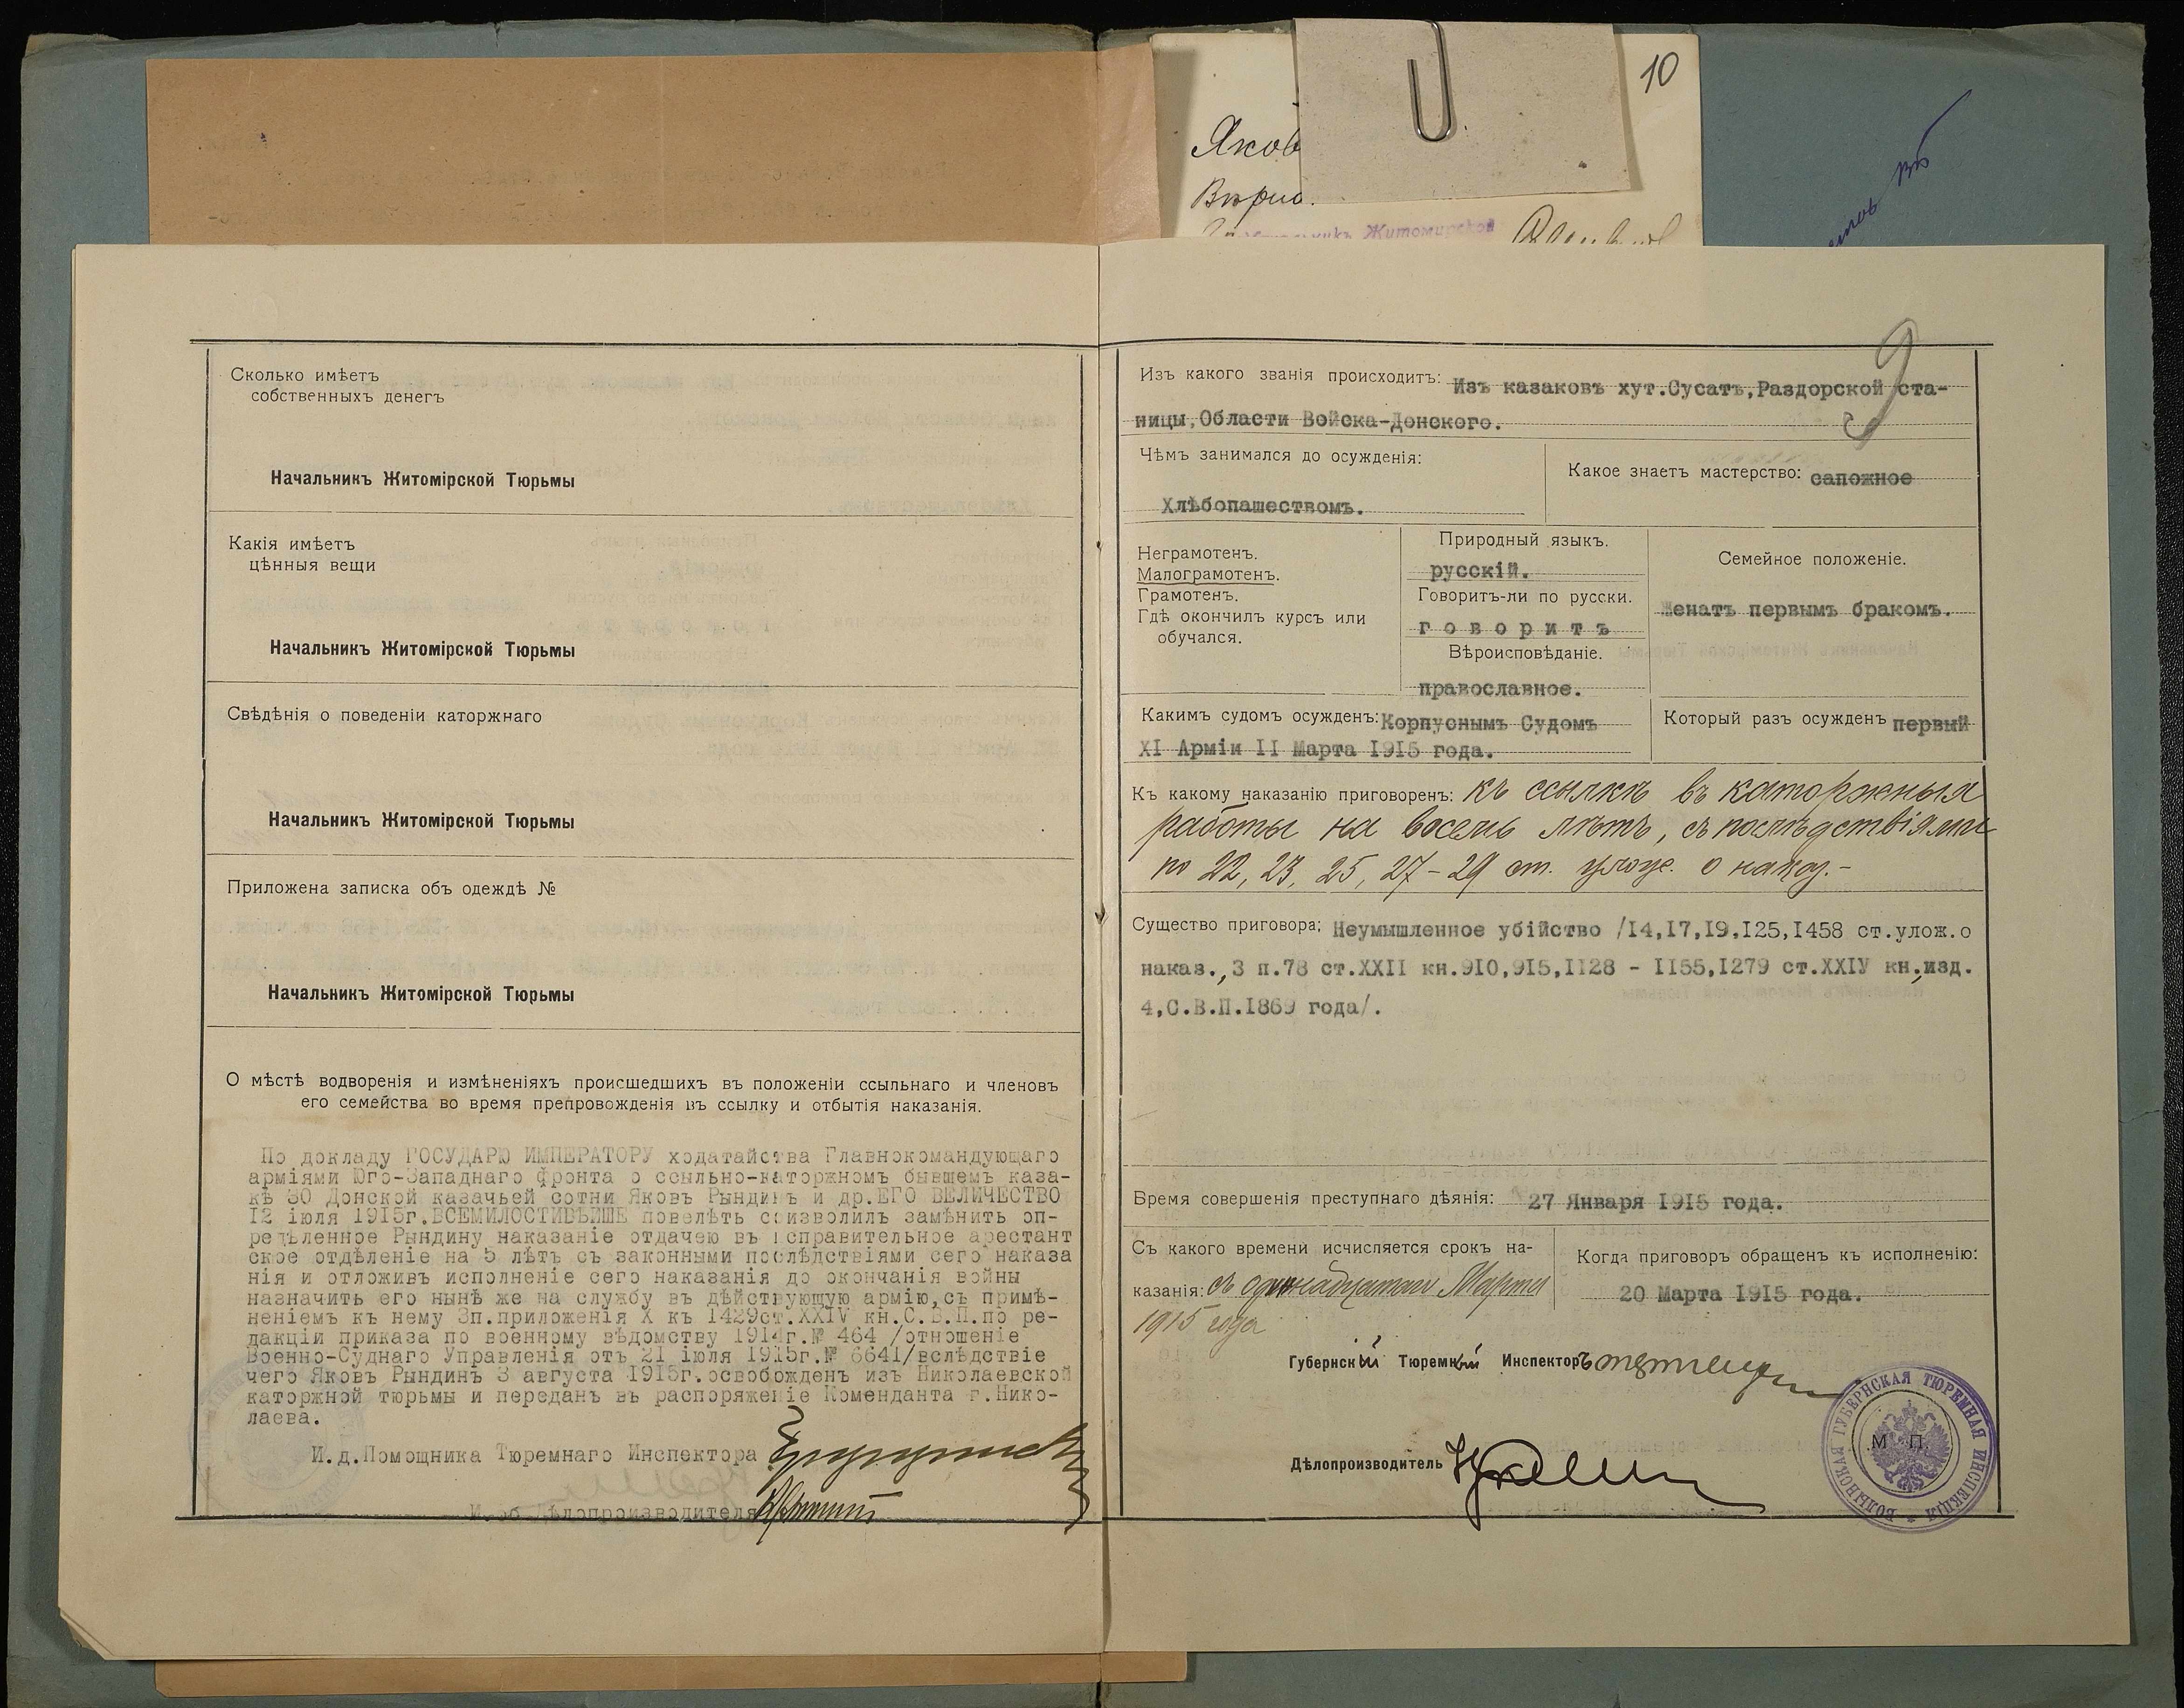 10
Яковъ
Вѣрно.
Житомирской
въ
Сколько имѣетъ
собственныхъ денегъ
Начальникъ Житомірской Тюрьмы
Какія имѣетъ
цѣнныя вещи
Начальникъ Житомірской Тюрьмы
Свѣдѣнія о поведеніи каторжнаго
Начальникъ Житомірской Тюрьмы
Приложена записка объ одеждѣ №
Начальникъ Житомірской Тюрьмы
О мѣстѣ водворенія и измѣненіяхъ происшедшихъ въ положеніи ссыльнаго и членовъ
его семейства во время препровожденія въ ссылку и отбытія наказанія.
По докладу ГОСУДАРЮ ИМПЕРАТОРУ ходатайства Главнокомандующаго
арміями Юго-Западнаго фронта о ссыльно-каторжномъ бывшемъ каза-
кѣ 30 Донской казачьей сотни Яковъ Рындинъ и др.ЕГО ВЕЛИЧЕСТВО
12 іюля 1915г.ВСЕМИЛОСТИВѢЙШЕ повелѣть соизволилъ замѣнить оп-
редѣленное Рындину наказаніе отдачею въ исправительное арестант
ское отдѣленіе на 5 лѣтъ съ законными послѣдствіями сего наказа
нія и отложивъ исполненіе сего наказанія до окончанія войны
назначить его нынѣ же на службу въ дѣйствующую армію,съ примѣ-
неніемъ къ нему 3п.приложенія X къ 1429ст.XXIV кн.С.В.П.по ре-
дакціи приказа по военному вѣдомству 1914г.№ 464 /отношеніе
Военно-Суднаго Управленія отъ 21 іюля 1915г.№ 6641/вслѣдствіе
чего Яковъ Рындинъ 3 августа 1915г.освобожденъ изъ Николаевской
каторжной тюрьмы и переданъ въ распоряженіе Коменданта г.Нико-
лаева.
И.д.Помощника Тюремнаго Инспектора
И.об.Дѣлопроизводителя
9
Изъ какого званія происходитъ: Изъ казаковъ хут.Сусатъ,Раздорской ста-
ницы,Области Войска-Донского.
Чѣмъ занимался до осужденія:
Хлѣбопашествомъ.
Какое знаетъ мастерство: сапожное
Неграмотенъ.
Малограмотенъ.
Грамотенъ.
Гдѣ окончилъ курсъ или
обучался.
Природный языкъ.
русскій.
Говоритъ-ли по русски.
говоритъ
Вѣроисповѣданіе.
православное.
Семейное положеніе.
Женатъ первымъ бракомъ.
Какимъ судомъ осужденъ: Корпуснымъ Судомъ
XI Арміи II Марта I9I5 года.
Который разъ осужденъ первый
Къ какому наказанію приговоренъ: къ ссылкѣ въ каторжныя
работы на восемь лѣтъ, съ послѣдствіями
по 22, 23, 25, 27-29 ст. улож. о наказ.-
Существо приговора: Неумышленное убійство /I4,I7,I9,I25,I458 ст.улож.о
наказ., 3 п.78 ст.XXII кн.9I0,9I5,II28 - II55,I279 ст.XXIV кн.,изд.
4,С.В.П.I869 года/.
Время совершенія преступнаго дѣянія: 27 Января I9I5 года.
Съ какого времени исчисляется срокъ на-
казанія: съ одиннадцатаго Марта
1915 года
Когда приговоръ обращенъ къ исполненію:
20 Марта I9I5 года.
Губернскій Тюремный Инспекторъ
Дѣлопроизводитель
М. П.
ВОЛЫНСКАЯ ГУБЕРНСКАЯ ТЮРЕМНАЯ ИНСПЕКЦІЯ